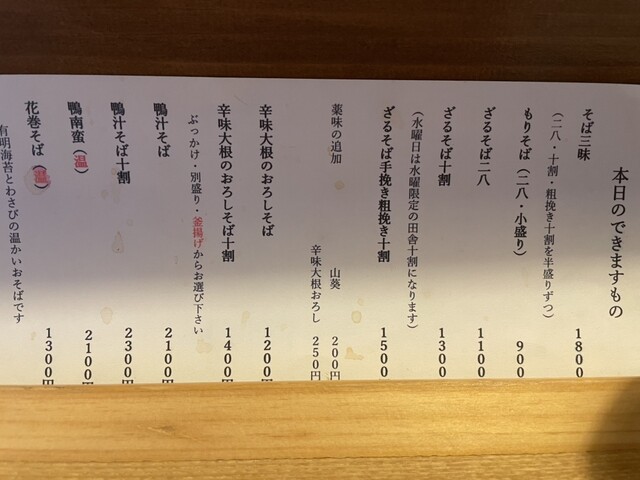 本日のできますもの
そば三昧 1800
(二八・十割・粗挽き十割を半盛りずつ)
もりそば(二八・小盛り) 900
ざるそば二八 1100
ざるそば十割 1300
(水曜日は水曜限定の田舎十割になります)
ざるそば手挽き粗挽き十割 1500
薬味の追加 山葵 200円
辛味大根おろし 250円
辛味大根のおろしそば 1200円
辛味大根のおろしそば十割 1400円
ぶっかけ・別盛り・釜揚げからお選び下さい
鴨汁そば 2100円
鴨汁そば十割 2300円
鴨南蛮(温) 2100円
花巻そば(温) 1300円
有明海苔とわさびの温かいおそばです